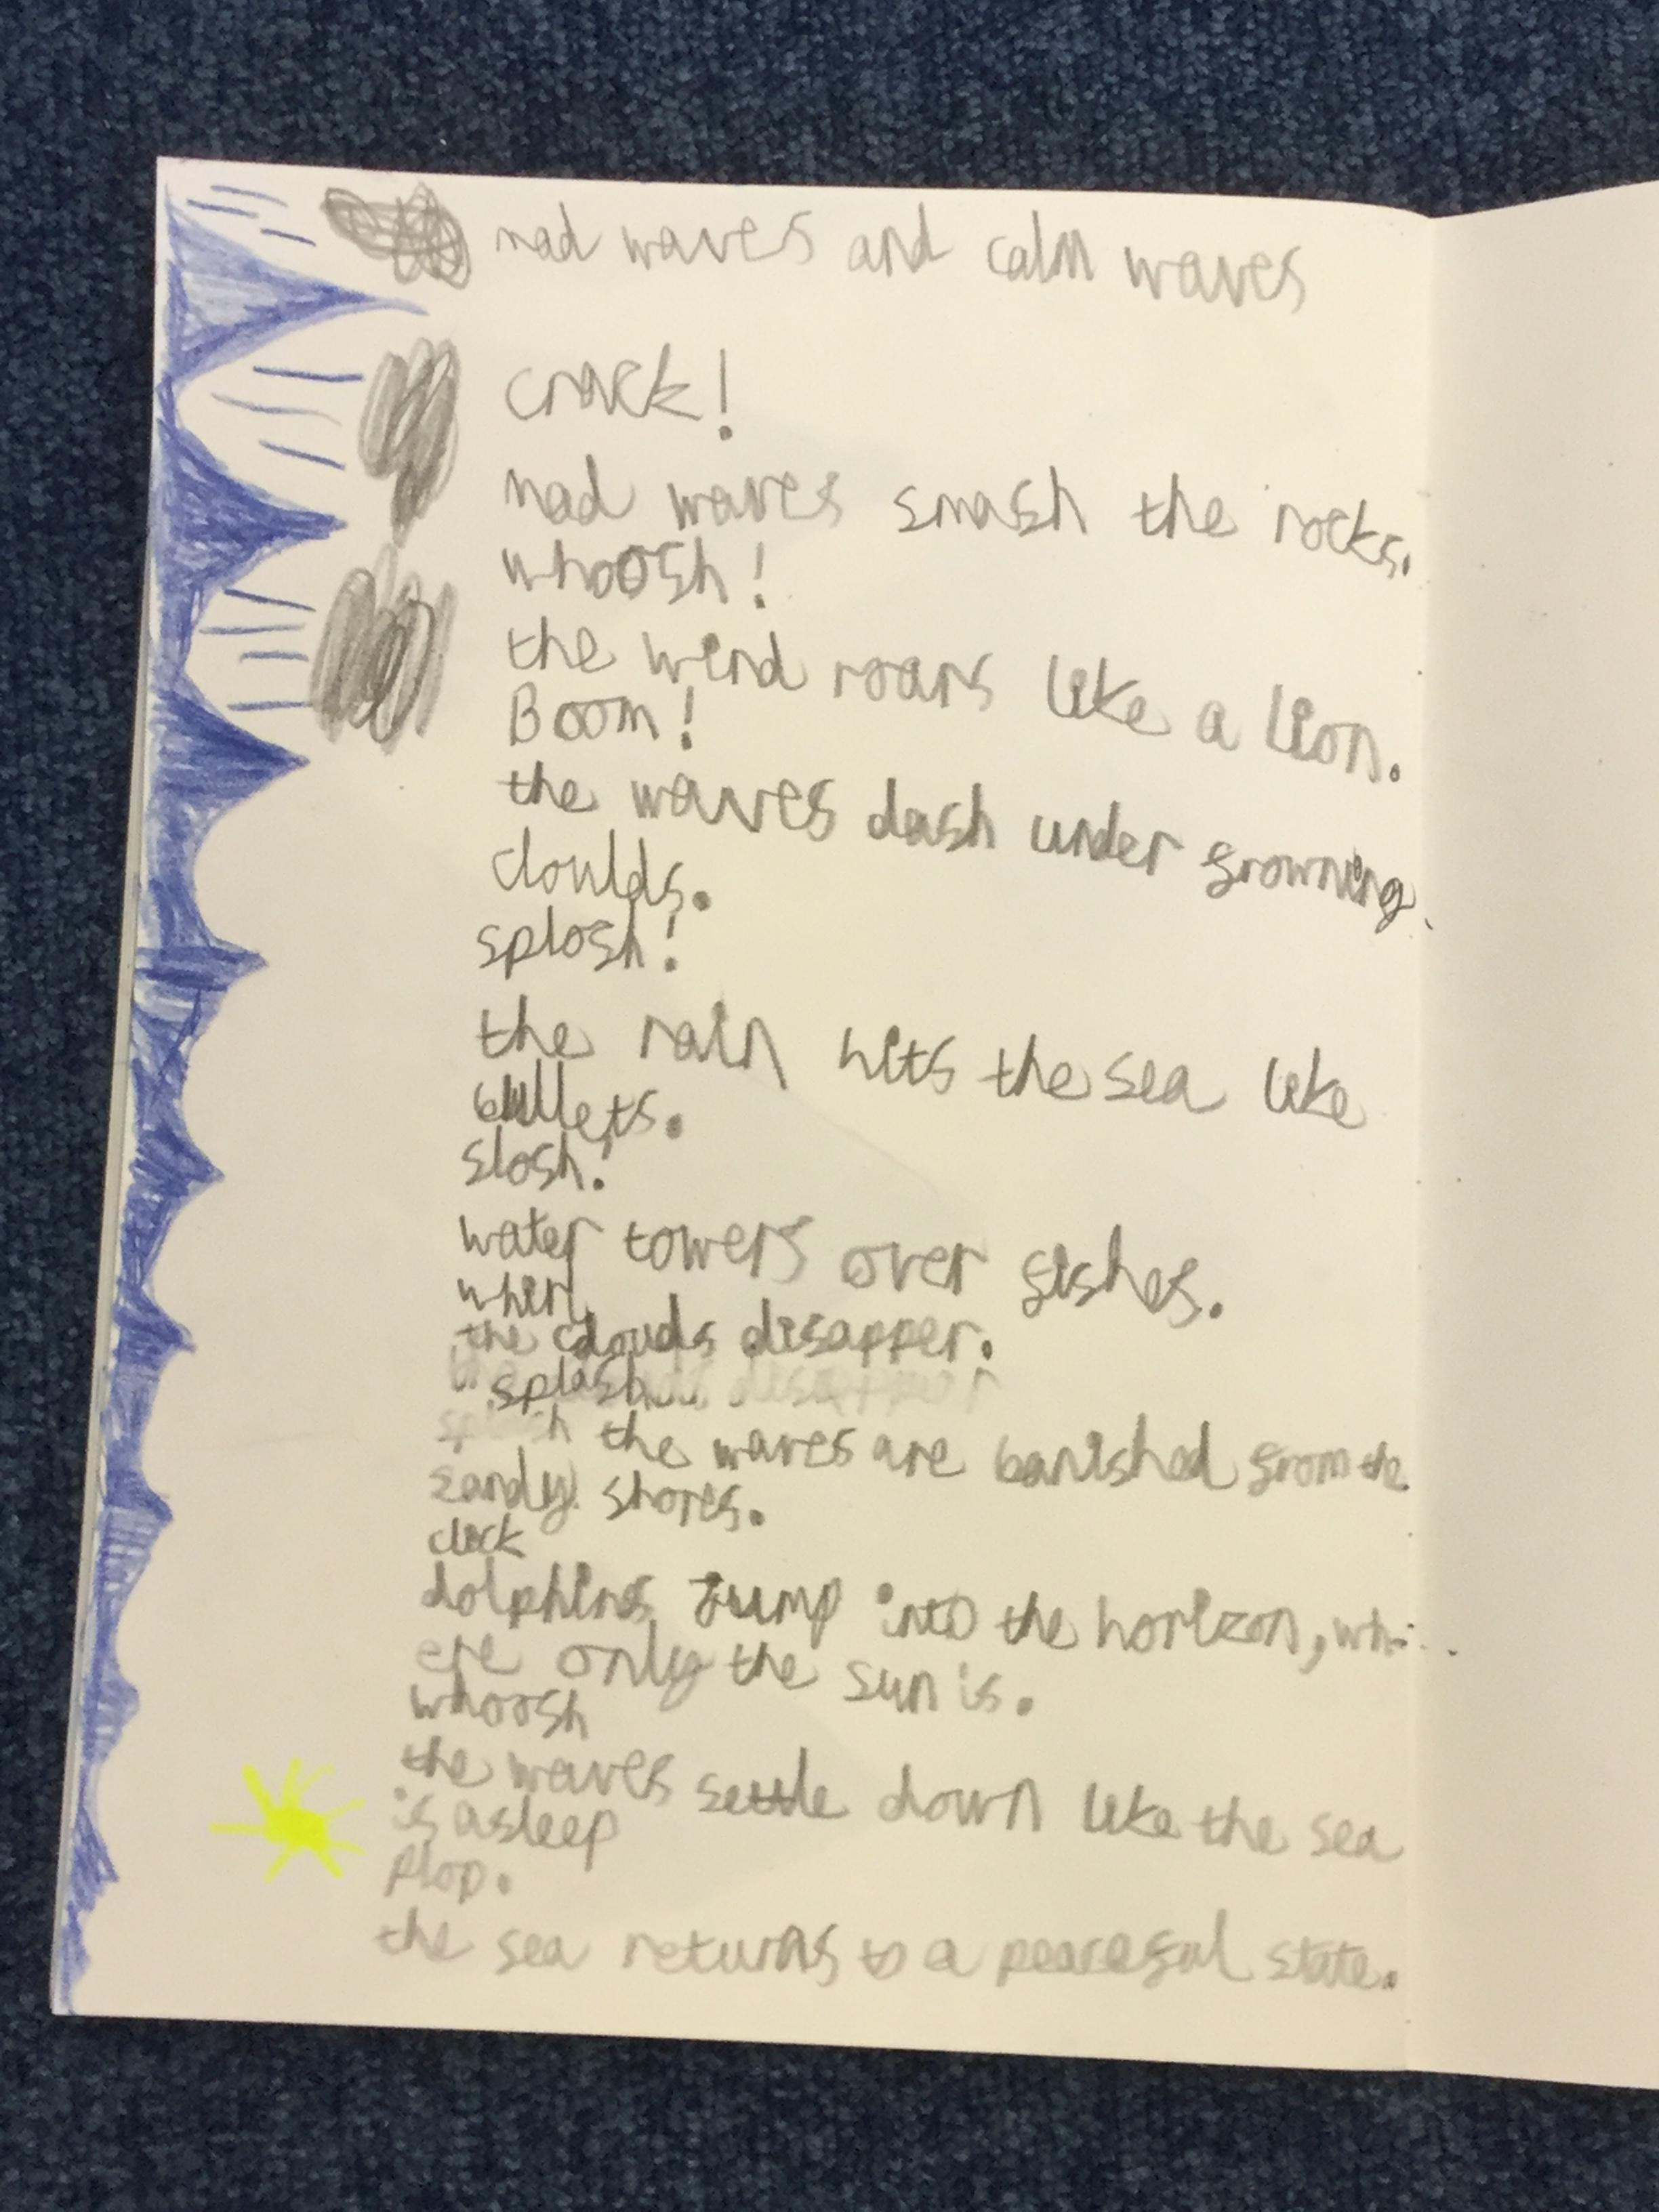 mad waves and calm waves
crack!
mad waves smash the rocks.
whoosh!
the wind roars like a lion.
Boom!
the waves dash under frowning
cloulds.
splosh!
the rain hits the sea like
bullets.
slosh!
water towers over fishes.
whirl
the clouds disapper.
splash...
the waves are banished from the
sandy shores.
click
dolphins jump into the horizon, wh
ere only the sun is.
whoosh
the waves settle down like the sea
is asleep
plop.
the sea returns to a peaceful state.